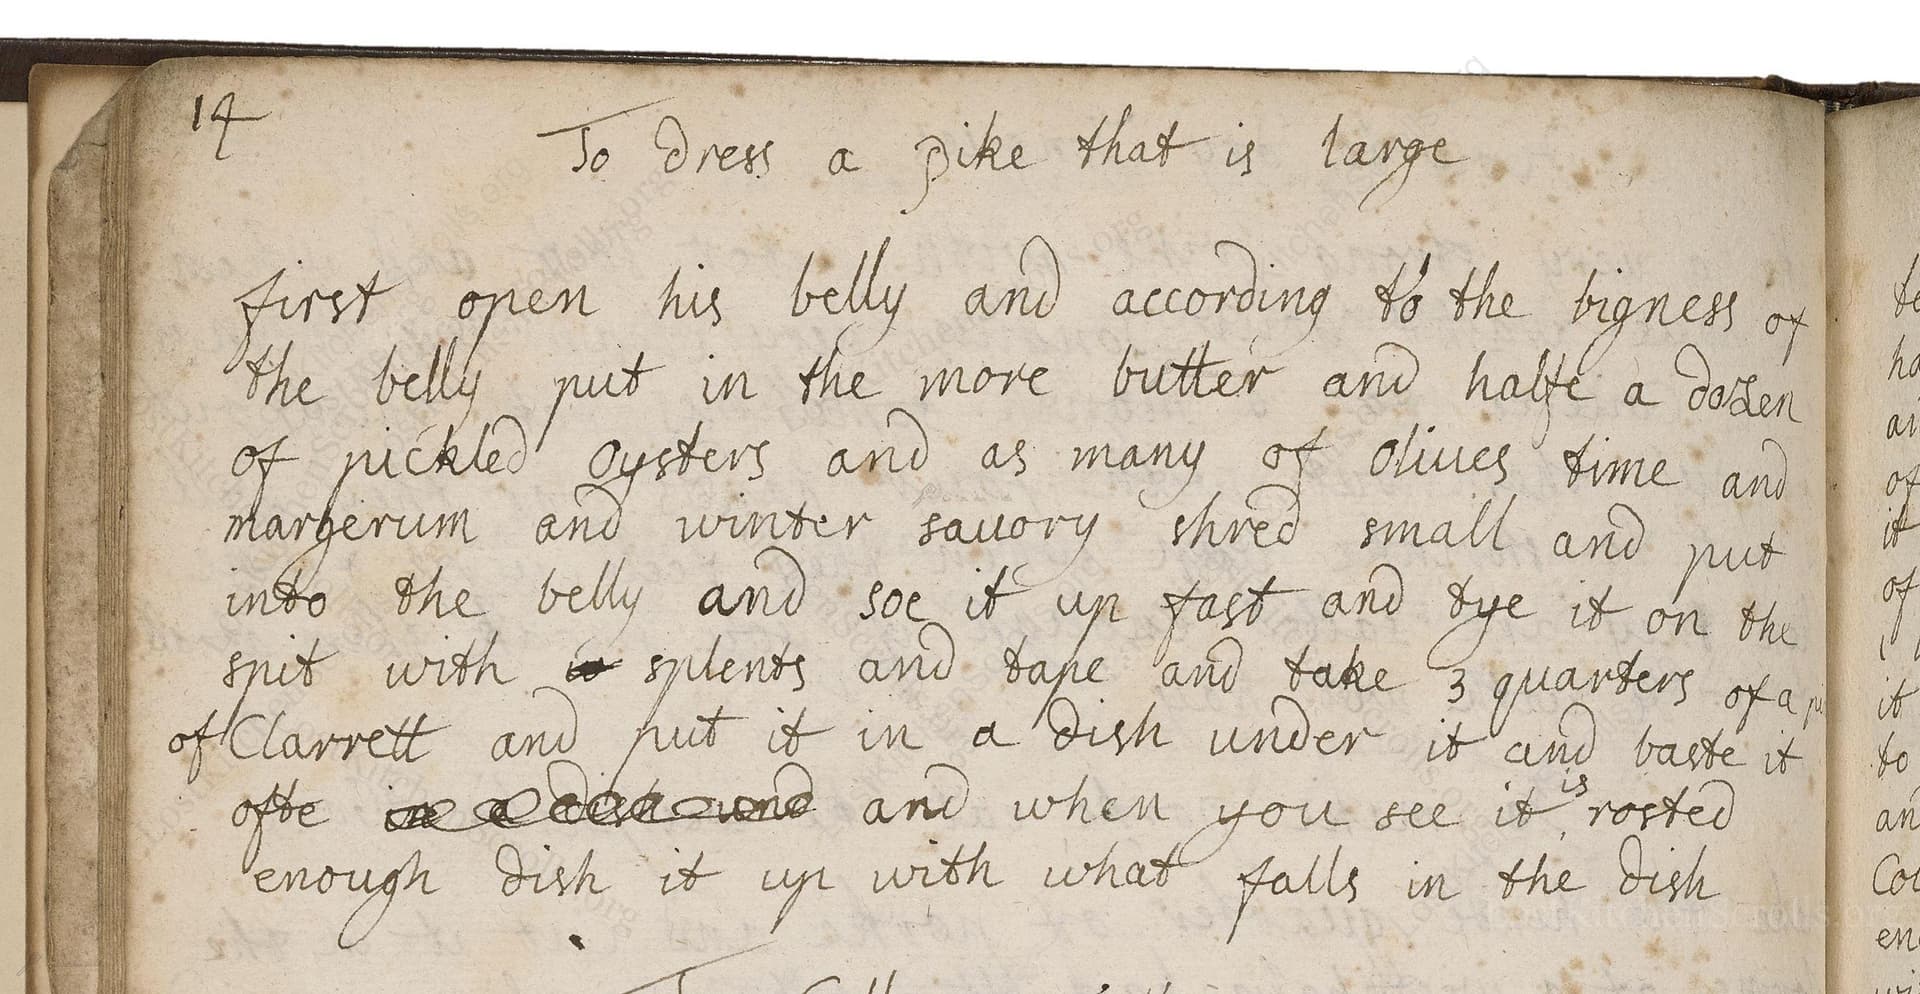 14
To dress a pike that is large
first open his belly and according to the bigness of
the belly put in the more butter and halfe a dozen
of pickled oysters and as many of oliues time and
margerum and winter sauory shred small and put
into the belly and soe it up fast and tye it on the
spit with splents and tape and take 3 quarters of a
of Clarrett and put it in a dish under it and baste it
ofte in a dish and and when you see it is rosted
enough dish it up with what falls in the dish